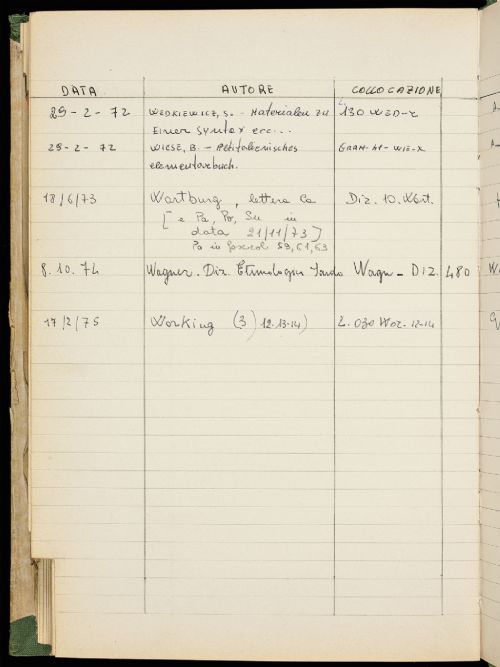 DATA AUTORE COLLOCAZIONE
25-2-72 WEDKIEWICZ, S. - Materialen zu 130 WED-
Einer Syntax ecc...
25-2-72 WIESE, B. - Altitalienisches GRAM. WIE-X
elementarbuch.
18/6/73 Wartburg, lettera Ca Diz. 10. Wart.
[ e Pa, Po, Su in
data 21/11/73 ]
Pa in fascicol 59, 61, 63
8.10.74 Wagner. Diz. Etimologico Sardo Wagn - DIZ. 480
17/2/75 Working (3) 12-13-14) L. 030 Wor. 12-14